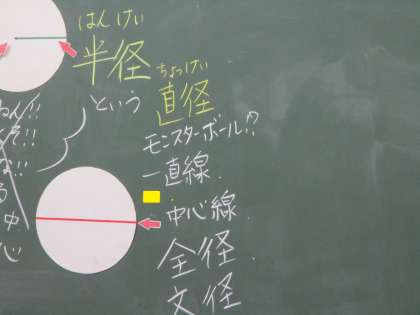 はんけい
半径
ちょっけい
直径
という
モンスターボール!?
一直線
中心線
全径
文径